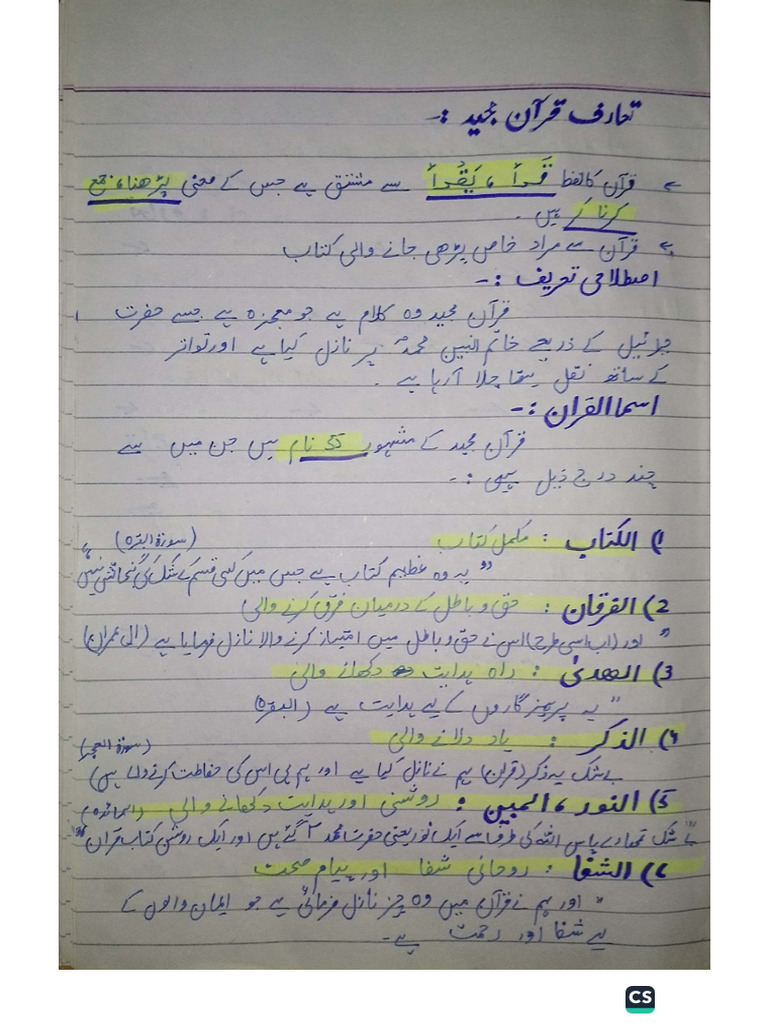 تعارف قرآن مجید :-
← قرآن کا لفظ قَرَأَ ، یَقْرَأُ سے مشتق ہے جس کے معنی پڑھنا، جمع
کرنا کر ہیں ۔
← قرآن سے مراد خاص پڑھی جانے والی کتاب
اصطلاحی تعریف :-
قرآن مجید وہ کلام ہے جو معجزہ ہے جسے حضرت
جبرائیل کے ذریعے خاتم النبین محمدؐ پر نازل کیا ہے اور تواتر
کے ساتھ نقل ہوتا چلا آ رہا ہے ۔
اسما القران :-
قرآن مجید کے مشہور 55 نام ہیں جن میں سے
چند درج ذیل ہیں :-
1) الکتاب : مکمل کتاب (سورۃ البقرہ)
" یہ وہ عظیم کتاب ہے جس میں کسی قسم کے شک کی گنجائش نہیں "
2) الفرقان : حق و باطل کے درمیان فرق کرنے والی
" اور (اب اسی طرح) اس نے حق و باطل میں امتیاز کرنے والا نازل فرمایا ہے (ال عمران)
3) الھدیٰ : راہ ہدایت دکھانے والی
" یہ پرہیزگاروں کے لیے ہدایت ہے (البقرہ)
4) الذکر : یاد دلانے والی (سورۃ الحجر)
بے شک یہ ذکر (قران) ہم نے نازل کیا ہے اور ہم ہی اس کی حفاظت کرنے والے ہیں)
5) النور ، المبین : روشنی اور ہدایت دکھانے والی (المائدہ)
" بے شک تمھارے پاس اللہ کی طرف سے ایک نور یعنی حضرت محمد آ گئے ہیں اور ایک روشن کتاب قران "
6) الشفا : روحانی شفا اور پیام صحت
" اور ہم نے قرآن میں وہ چیز نازل فرمائی ہے جو ایمان والوں کے
لیے شفا اور رحمت ہے ۔
CS